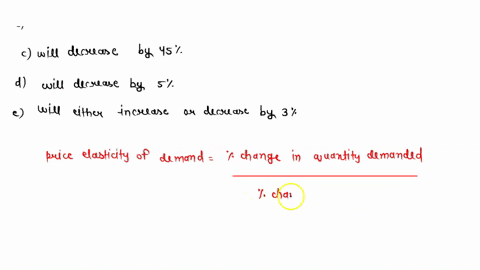 c) will decrease by 45%.
d) will decrease by 5%
e) will either increase or decrease by 3%
price elasticity of demand = % change in quantity demanded
% cha